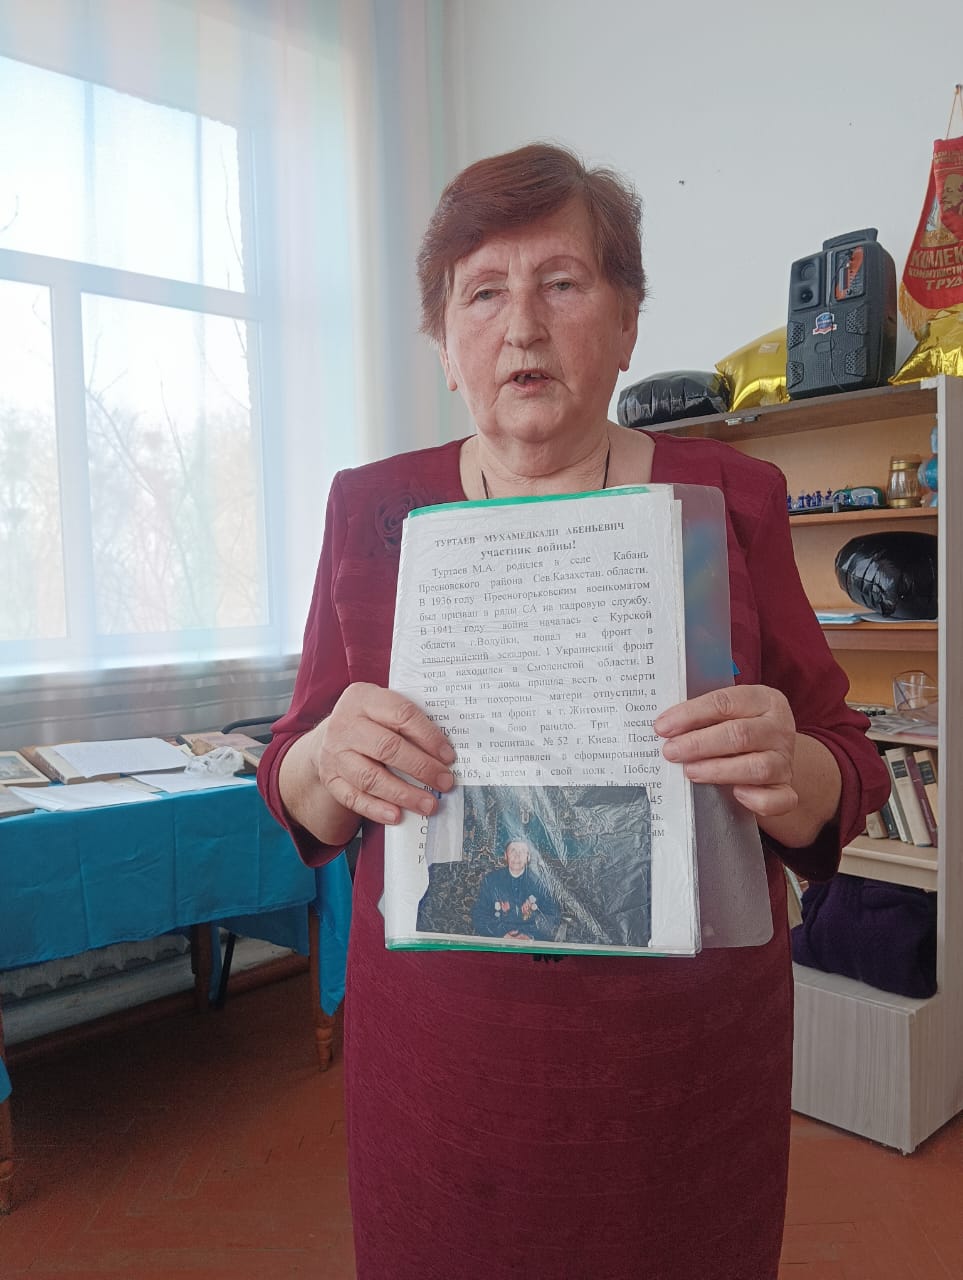 ТУРТАЕВ МУХАМЕДКАЛИ АБЕНЬЕВИЧ
участник войны!
Туртаев М.А. родился в селе Кабань
Пресновского района Сев.Казахстан. области.
В 1936 году Пресногорьковским военкоматом
был призван в ряды СА на кадровую службу.
В 1941 году война началась с Курской
области г.Волуйки, попал на фронт в
кавалерийский эскадрон. 1 Украинский фронт
тогда находился в Смоленской области. В
это время из дома пришла весть о смерти
матери. На похороны матери отпустили, а
затем опять на фронт в г. Житомир. Около
Дубны в бою ранило. Три месяца
в госпитале № 52 г. Киева. После
был направлен в сформированный
№165, а затем в свой полк . Победу
Киева. На фронте
45
КОЛЛЕК
КОММУНИСТИЧ
ТРУДА